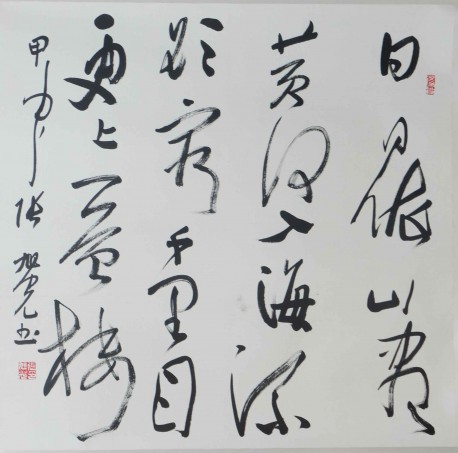 白日依山尽
黄河入海流
欲穷千里目
更上一层楼
甲申张旭光书